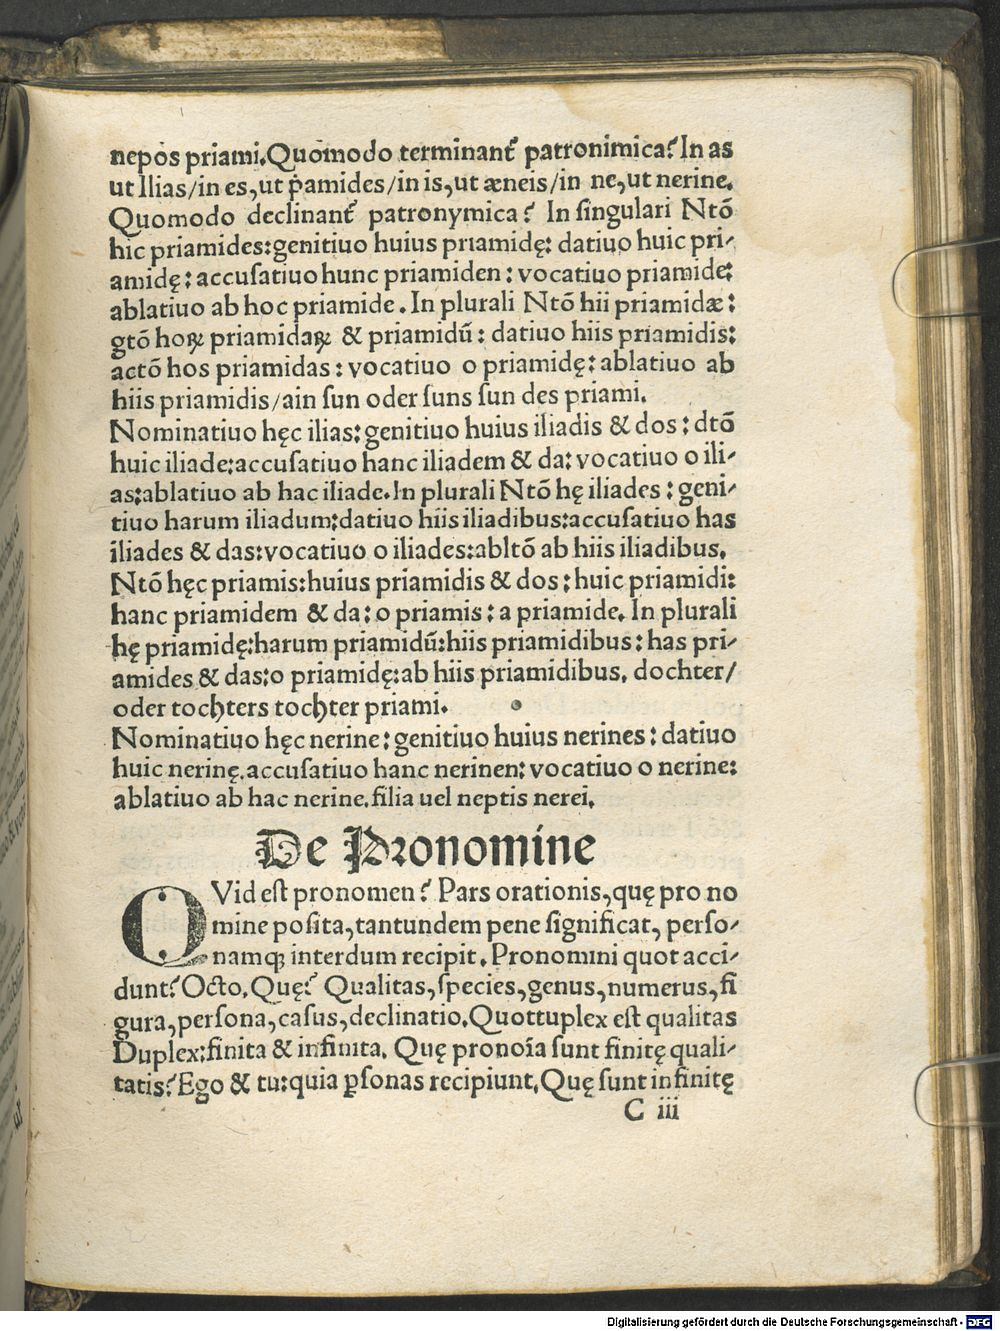 nepos priami. Quomodo terminant᷑ patronimica? In as
ut Ilias/in es, ut p̍amides/in is, ut æneis/in ne, ut nerine.
Quomodo declinant᷑ patronymica? In ſingulari Ntō
hic priamides: genitiuo huius priamidę: datiuo huic pri⸗
amidę: accuſatiuo hunc priamiden: vocatiuo priamide:
ablatiuo ab hoc priamide. In plurali Ntō hii priamidæ:
gtō hoꝝ priamidaꝝ & priamidū: datiuo hiis priamidis:
actō hos priamidas: vocatiuo o priamidę: ablatiuo ab
hiis priamidis/ain ſun oder ſuns ſun des priami.
Nominatiuo hęc ilias: genitiuo huius iliadis & dos: dtō
huic iliade: accuſatiuo hanc iliadem & da: vocatiuo o ili⸗
as: ablatiuo ab hac iliade. In plurali Ntō hę iliades: geni⸗
tiuo harum iliadum: datiuo hiis iliadibus: accuſatiuo has
iliades & das: vocatiuo o iliades: abltō ab hiis iliadibus.
Ntō hęc priamis: huius priamidis & dos: huic priamidi:
hanc priamidem & da: o priamis: a priamide. In plurali
hę priamidę: harum priamidū: hiis priamidibus: has pri⸗
amides & das: o priamidę: ab hiis priamidibus. dochter/
oder tochters tochter priami.
Nominatiuo hęc nerine: genitiuo huius nerines: datiuo
huic nerinę. accuſatiuo hanc nerinen: vocatiuo o nerine:
ablatiuo ab hac nerine. filia uel neptis nerei.
De Pronomine
QVid eſt pronomen? Pars orationis, quę pro no
mine poſita, tantundem pene ſignificat, perſo⸗
namqꝫ interdum recipit. Pronomini quot acci⸗
dunt? Octo. Quę? Qualitas, ſpecies, genus, numerus, fi
gura, perſona, caſus, declinatio. Quottuplex eſt qualitas
Duplex: finita & infinita. Quę pronoīa ſunt finitę quali⸗
tatis? Ego & tu: quia ꝑſonas recipiunt. Quę ſunt infinitę
C iii
Digitalisierung gefördert durch die Deutsche Forschungsgemeinschaft - DFG